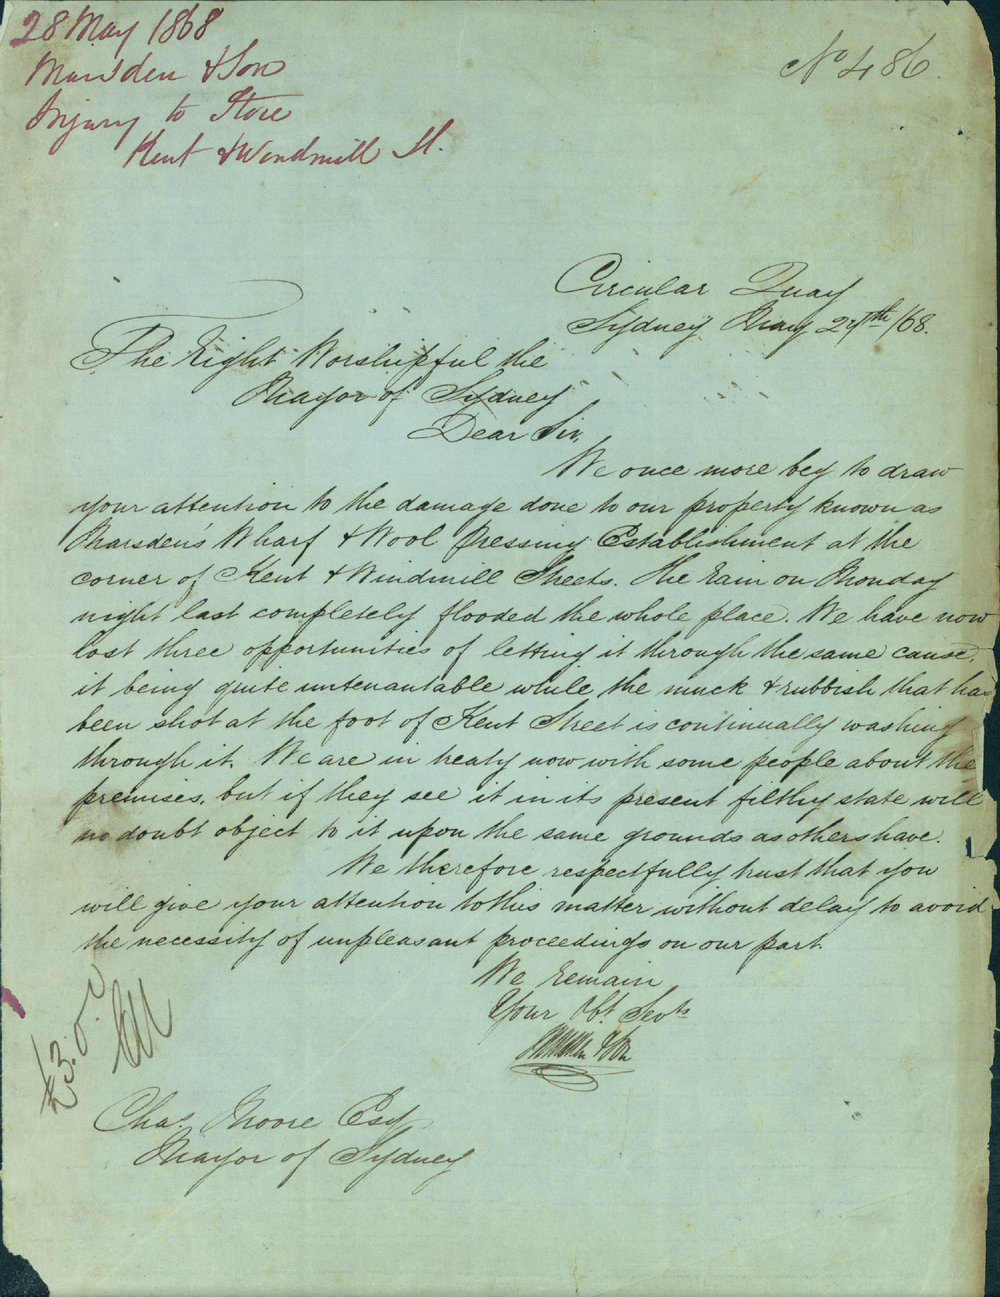 28 May 1868
Marsden & Son
Injury to Store
Kent & Windmill St.
No 486
Circular Quay
Sydney May 27th /68.
The Right Worshipful the
Mayor of Sydney
Dear Sir,
We once more beg to draw
your attention to the damage done to our property known as
Marsden's Wharf & Wool Pressing Establishment at the
corner of Kent & Windmill Streets. The rain on Monday
night last completely flooded the whole place. We have now
lost three opportunities of letting it through the same cause,
it being quite untenantable while the muck & rubbish that has
been shot at the foot of Kent Street is continually washing
through it. We are in treaty now with some people about the
premises, but if they see it in its present filthy state will
no doubt object to it upon the same grounds as others have.
We therefore respectfully trust that you
will give your attention to this matter without delay to avoid
the necessity of unpleasant proceedings on our part.
We remain
Your Obt. Servts
Marsden & Son
£3.0.0
Chas. Moore Esq
Mayor of Sydney